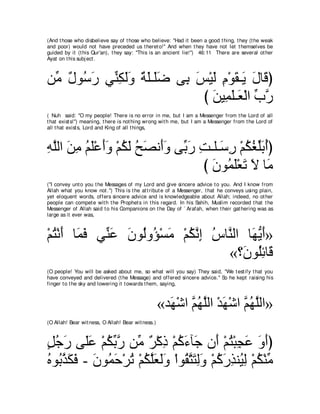 (And those who disbelieve say of those who believe: "Had it been a good thing, they (the weak
and poor) would not have preceded us thereto!" And when they have not let themselves be
guided by it (this Qur'an), they say: "This is an ancient lie!") 46:11 There are several other
Ayat on this subject.
قَالَ يـقَوْمِ لَيْسَ بِى ضَلَـلَةٌ وَلَكِنِّي رَسُولٌ مِّن)
رَّبِّ الْعَـلَمِينَ )
( Nuh said: "O my people! There is no error in me, but I am a Messenger from the Lord of all
that exists!") meaning, there is nothing wrong with me, but I am a Messenger from the Lord of
all that exists, Lord and King of all things,
أُبَلِّغُكُمْ رِسَـلَـتِ رَبِّى وَأَنصَحُ لَكُمْ وَأَعْلَمُ مِنَ اللَّهِ)
مَا لاَ تَعْلَمُونَ )
("I convey unto you the Messages of my Lord and give sincere advice to you. And I know from
Allah what you know not.") This is the attribute of a Messenger, that he conveys using plain,
yet eloquent words, offers sincere advice and is knowledgeable about Allah; indeed, no other
people can compete with the Prophets in this regard. In his Sahih, Muslim recorded that the
Messenger of Allah said to his Companions on the Day of `Arafah, when their gathering was as
large as it ever was,
«أَيُّهَا النَّاسُ إِنَّكُمْ مَسْؤُولُونَ عَنِّي فَمَا أَنْتُمْ
قَائِلُونَ؟»
(O people! You will be asked about me, so what will you say) They said, "We testify that you
have conveyed and delivered (the Message) and offered sincere advice." So he kept raising his
finger to the sky and lowering it towards them, saying,
«اللَّهُمَّ اشْهَدْ اللَّهُمَّ اشْهَد»
(O Allah! Bear witness, O Allah! Bear witness.)
أَوَ عَجِبْتُمْ أَن جَآءَكُمْ ذِكْرٌ مِّن رَّبِّكُمْ عَلَى رَجُلٍ)
مِّنْكُمْ لِيُنذِرَكُمْ وَلِتَتَّقُواْ وَلَعَلَّكُمْ تُرْحَمُونَ - فَكَذَّبُوهُ